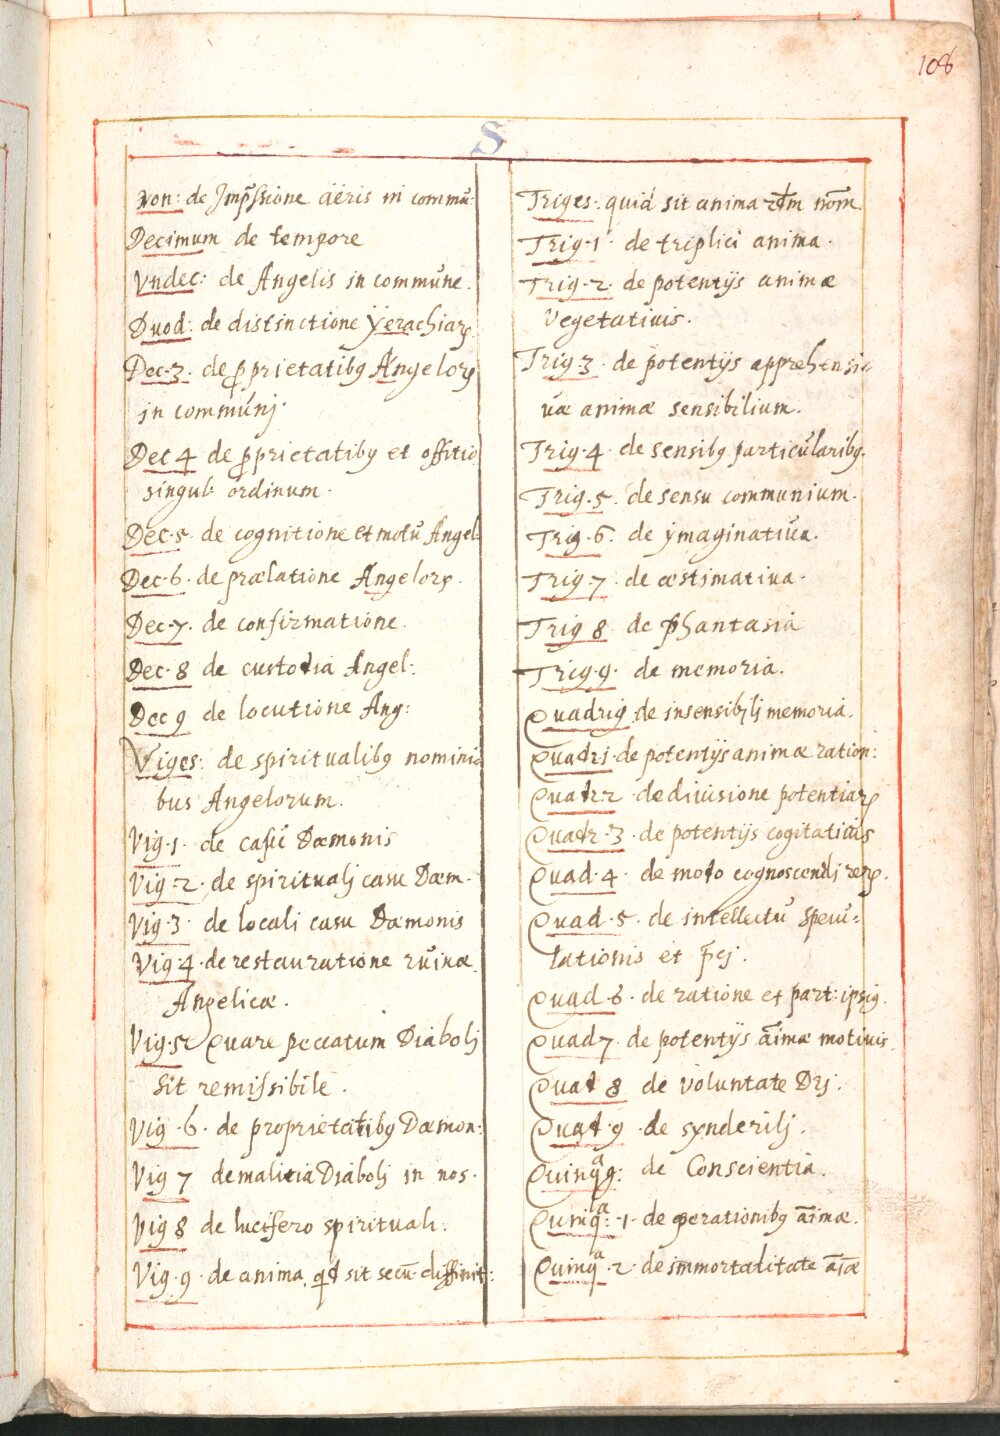 108
S
Non: de Imp̄ssione aëris in commu:
Decimum de tempore
Vndec: de Angelis in commune.
Duod: de distinctione yerachiarꝝ
Dec.3. de ꝓprietatibꝰ Angelorꝝ
in communj.
Dec 4 de ꝓprietatibꝰ et offitio
singul: ordinum.
Dec.5 de cognitione et motu Angel:
Dec.6. de prælatione Angelorꝝ.
Dec.7. de confirmatione.
Dec.8 de custodia Angel:
Dec 9 de locutione Ang:
Viges: de spiritualibꝰ nomini
bus Angelorum.
Vig.1. de casu Dæmonis
Vig.2. de spiritualj casu Dæm.
Vig.3 de locali casu Dæmonis
Vig 4. de restauratione ruinæ
Angelicæ.
Vig.5 Quare peccatum Diabolj
sit remissibile.
Vig.6. de proprietatibꝰ Dæmon:
Vig 7 de malitia Diabolj in nos.
Vig 8 de lucifero spirituali:
Vig.9. de anima qd sit secu: diffinit:
Triges: quid sit anima nom̄.
Trig.1. de triplici anima.
Trig.2. de potentijs animæ
Vegetatiuis.
Trig.3 de potentijs apprehensi
uæ animæ sensibilium.
Trig.4. de sensibꝰ particularibꝰ.
Trig.5. de sensu communium.
Trig.6. de ymaginatiua.
Trig.7. de æstimatiua.
Trig 8 de phantasia
Trig.9. de memoria.
Quadrig de insensibilj memoria.
Quadr1. de potentijs animæ ration:
Quadr2 de diuisione potentiarꝝ
Quadr.3. de potentijs cogitatiuis
Quad.4. de modo cognoscendj rerꝝ.
Quad.5. de intellectu specu:
lationis et p̄cj.
Quad.6. de ratione et part: ipsiꝰ.
Quad 7 de potentijs āimæ motiuis.
Quad 8 de voluntate Dj.
Quad.9 de synderilj.
Quinqᵃg: de Conscientia.
Quinqᵃ: 1. de operationibꝰ āimæ.
Quinqᵃ.2. de immortalitate āiæ